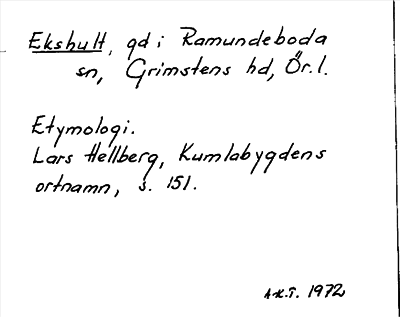 Ekshult, gd i Ramundeboda
sn, Grimstens hd, Ör. l.
Etymologi.
Lars Hellberg, Kumlabygdens
ortnamn, s. 151.
A-K.T. 1972